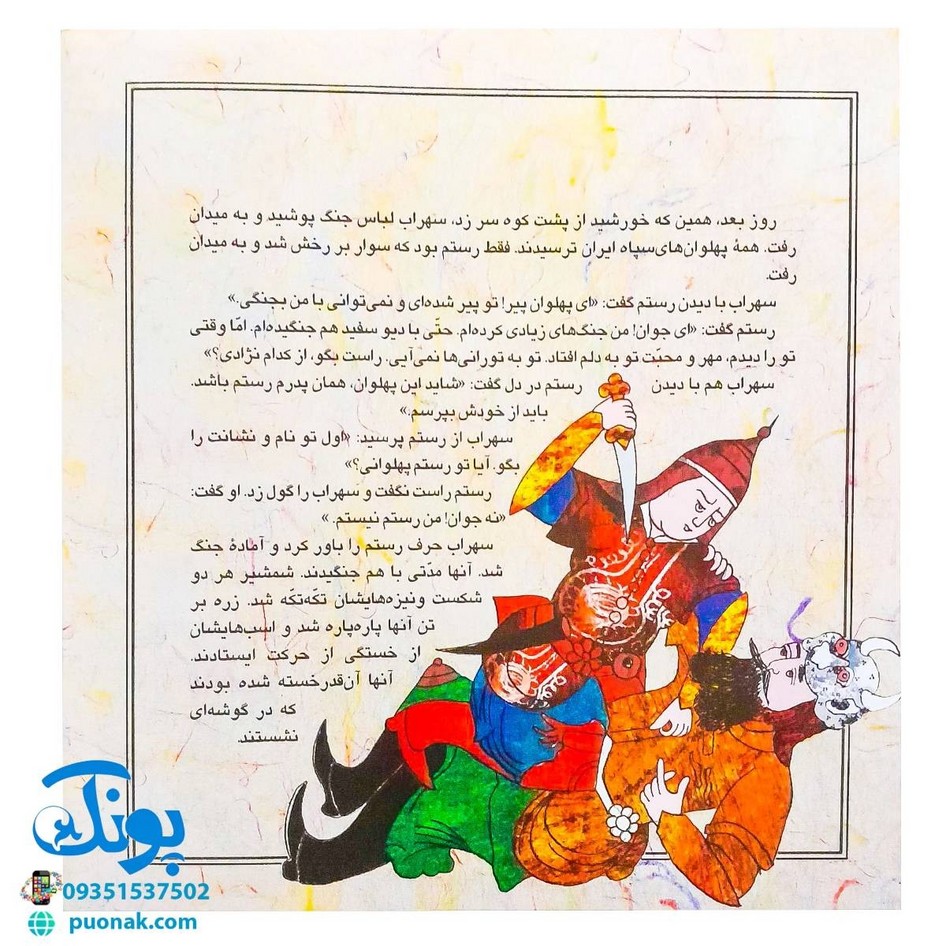 روز بعد، همین که خورشید از پشت کوه سر زد، سهراب لباس جنگ پوشید و به میدان
رفت. همهٔ پهلوان‌های‌سپاه ایران ترسیدند. فقط رستم بود که سوار بر رخش شد و به میدان
رفت.
سهراب با دیدن رستم گفت: «ای پهلوان پیر! تو پیر شده‌ای و نمی‌توانی با من بجنگی.»
رستم گفت: «ای جوان! من جنگ‌های زیادی کرده‌ام. حتّی با دیو سفید هم جنگیده‌ام. امّا وقتی
تو را دیدم، مهر و محبّت تو به دلم افتاد. تو به تورانی‌ها نمی‌آیی. راست بگو، از کدام نژادی؟»
سهراب هم با دیدن رستم در دل گفت: «شاید این پهلوان، همان پدرم رستم باشد.
باید از خودش بپرسم.»
سهراب از رستم پرسید: «اول تو نام و نشانت را
بگو. آیا تو رستم پهلوانی؟»
رستم راست نگفت و سهراب را گول زد. او گفت:
«نه جوان! من رستم نیستم.»
سهراب حرف رستم را باور کرد و آمادهٔ جنگ
شد. آنها مدّتی با هم جنگیدند. شمشیر هر دو
شکست ونیزه‌هایشان تکّه‌تکّه شد. زره بر
تن آنها پاره‌پاره شد و اسب‌هایشان
از خستگی از حرکت ایستادند.
آنها آن‌قدرخسته شده بودند
که در گوشه‌ای
نشستند.
پونک
09351537502
puonak.com